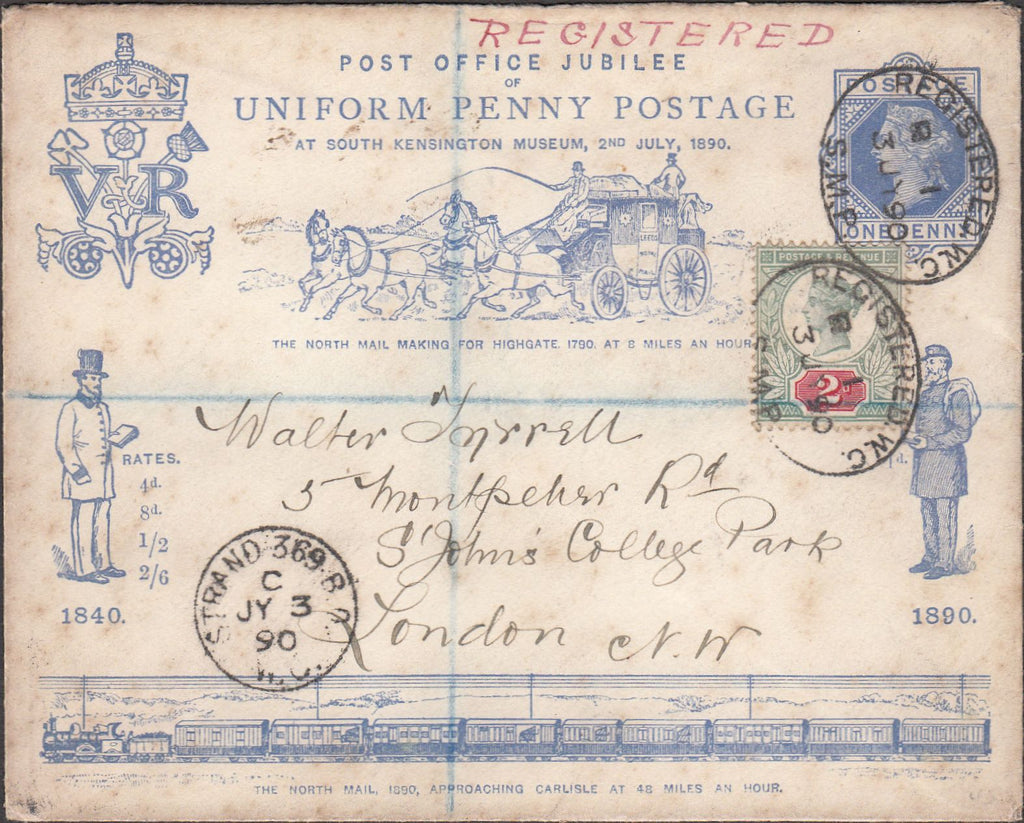 REGISTERED
POST OFFICE JUBILEE
OF
UNIFORM PENNY POSTAGE
AT SOUTH KENSINGTON MUSEUM, 2ND JULY, 1890.
VR
POSTAGE
ONE PENNY
REGISTERED.W.C.
1
3 JY 90
S.M.P.
LEEDS
THE NORTH MAIL MAKING FOR HIGHGATE. 1790. AT 8 MILES AN HOUR
POSTAGE & REVENUE
2d
REGISTERED.W.C.
1
3 JY 90
S.M.P.
Walter Tyrrell
5 Montpelier Rd
St John's College Park
London N.W
RATES.
4d.
8d.
1/2
2/6
1840.
1d.
1890.
STRAND 369.B.O.
C
JY 3
90
W.C.
THE NORTH MAIL, 1890, APPROACHING CARLISLE AT 48 MILES AN HOUR.